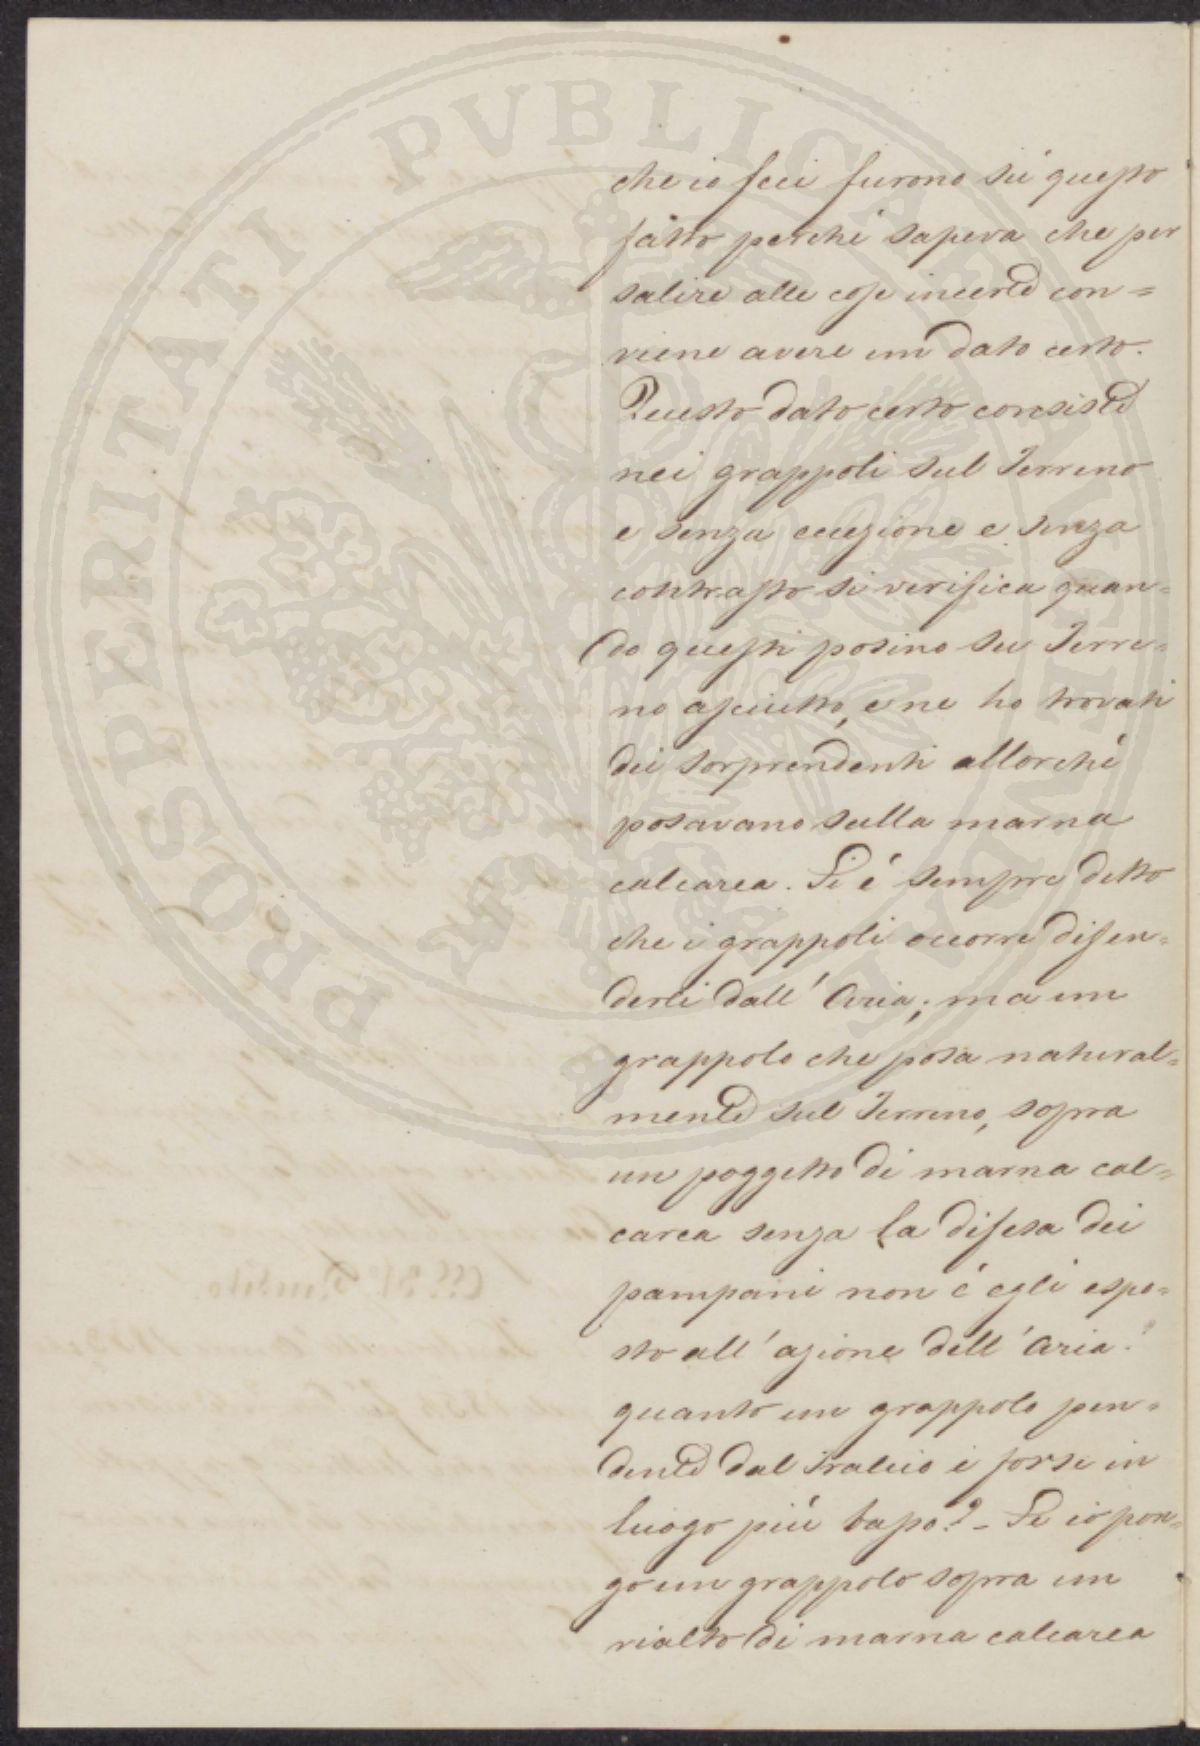 che io feci furono sù questo
fatto perchè sapeva che per
salire alle cose incerte con=
viene avere un dato certo.
Questo dato certo consiste
nei grappoli sul Terreno
e senza eccezione e senza
contrasto si verifica quan=
do questi posino su Terre=
no asciutto, e ne ho trovati
dei sorprendenti allorchè
posavano sulla marna
calcarea. Si è sempre detto
che i grappoli occorre difen=
derli dall' Aria; ma un
grappolo che posa natural=
mente sul Terreno, sopra
un poggetto di marna cal=
carea senza la difesa dei
pampani non è egli espo=
sto all' azione dell' Aria
quanto un grappolo pen=
dente dal tralcio e forse in
luogo più basso? - Se io pon=
go un grappolo sopra un
rialto di marna calcarea
PROSPERITATI PVBLICAE